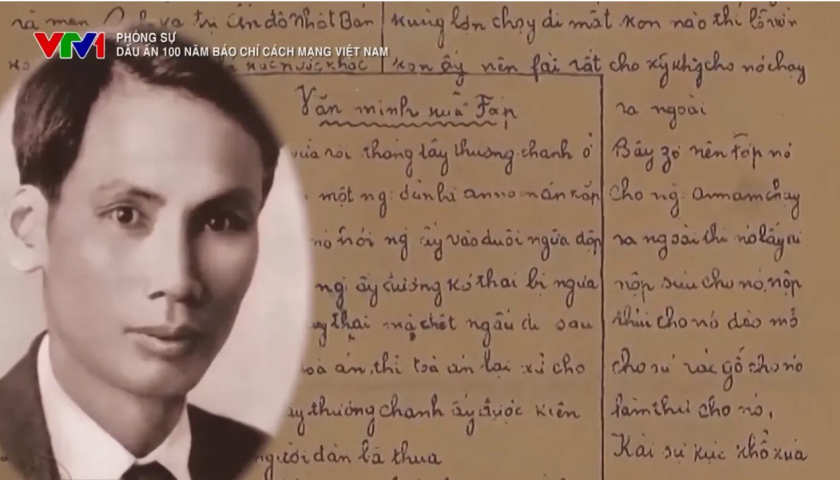 VTV1
PHÓNG SỰ
DẤU ẤN 100 NĂM BÁO CHÍ CÁCH MẠNG VIỆT NAM
rà men và trị Nhật Bản
nước khác
Văn minh kuả Fáp
vừa rồi thằng tây thương chanh ở
một ng. dàn bà
nó nói ng ấy vào duôi ngựa
ng ấy dương kó thai bị ngựa
thai mà chết sau
toà án, thì toà án lại xử cho
thương chanh ấy được kiên
người dàn bà thua
kung lớn chạy đi mất kon nào thì
kon ấy nên fải rất cho kỹ cho nó chạy
ra ngoài
Bây zờ nên nó
cho ng. annam chạy
ra ngoài thì nó lấy ai
nộp sưu cho nó, nộp
cho nó dào mỏ
cho nó vác gỗ cho nó
làm cho nó,
Kái sự kực khổ kuả